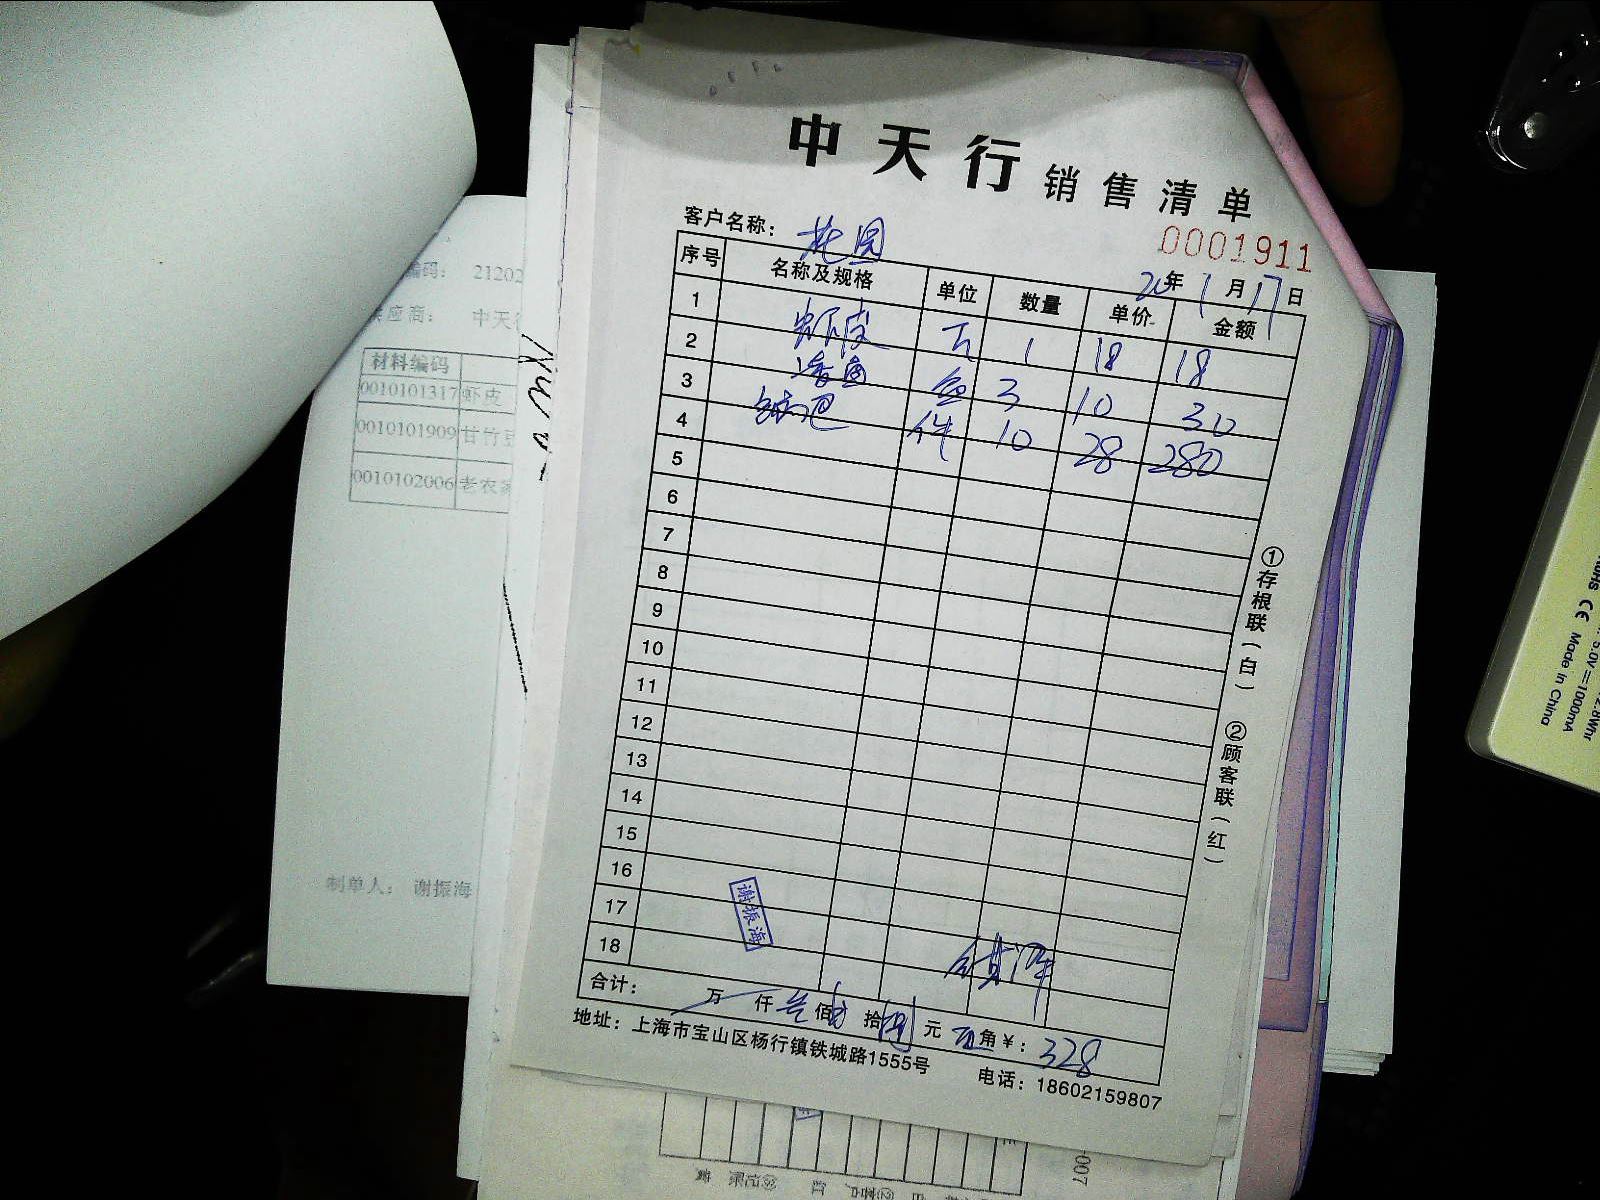 中天行 销售清单
0001911
客户名称： 花园
20年1月17日
序号 名称及规格 单位 数量 单价 金额
1 虾皮 斤 1 18 18
2 3 10 30
3 锅巴 件 10 28 280
4
5
6
7
8
9
10
11
12
13
14
15
16
17
18
谢振海
合计： 万 仟 叁 佰 贰 拾 捌 元 角¥： 328
地址：上海市宝山区杨行镇铁城路1555号
电话：18602159807
①存根联（白）
②顾客联（红）
编码： 21202
供应商： 中天行
材料编码
0010101317 虾皮
0010101909 甘竹豆
0010102006 老农家
制单人： 谢振海
5.0V⎓1000mA
Made in China
-007